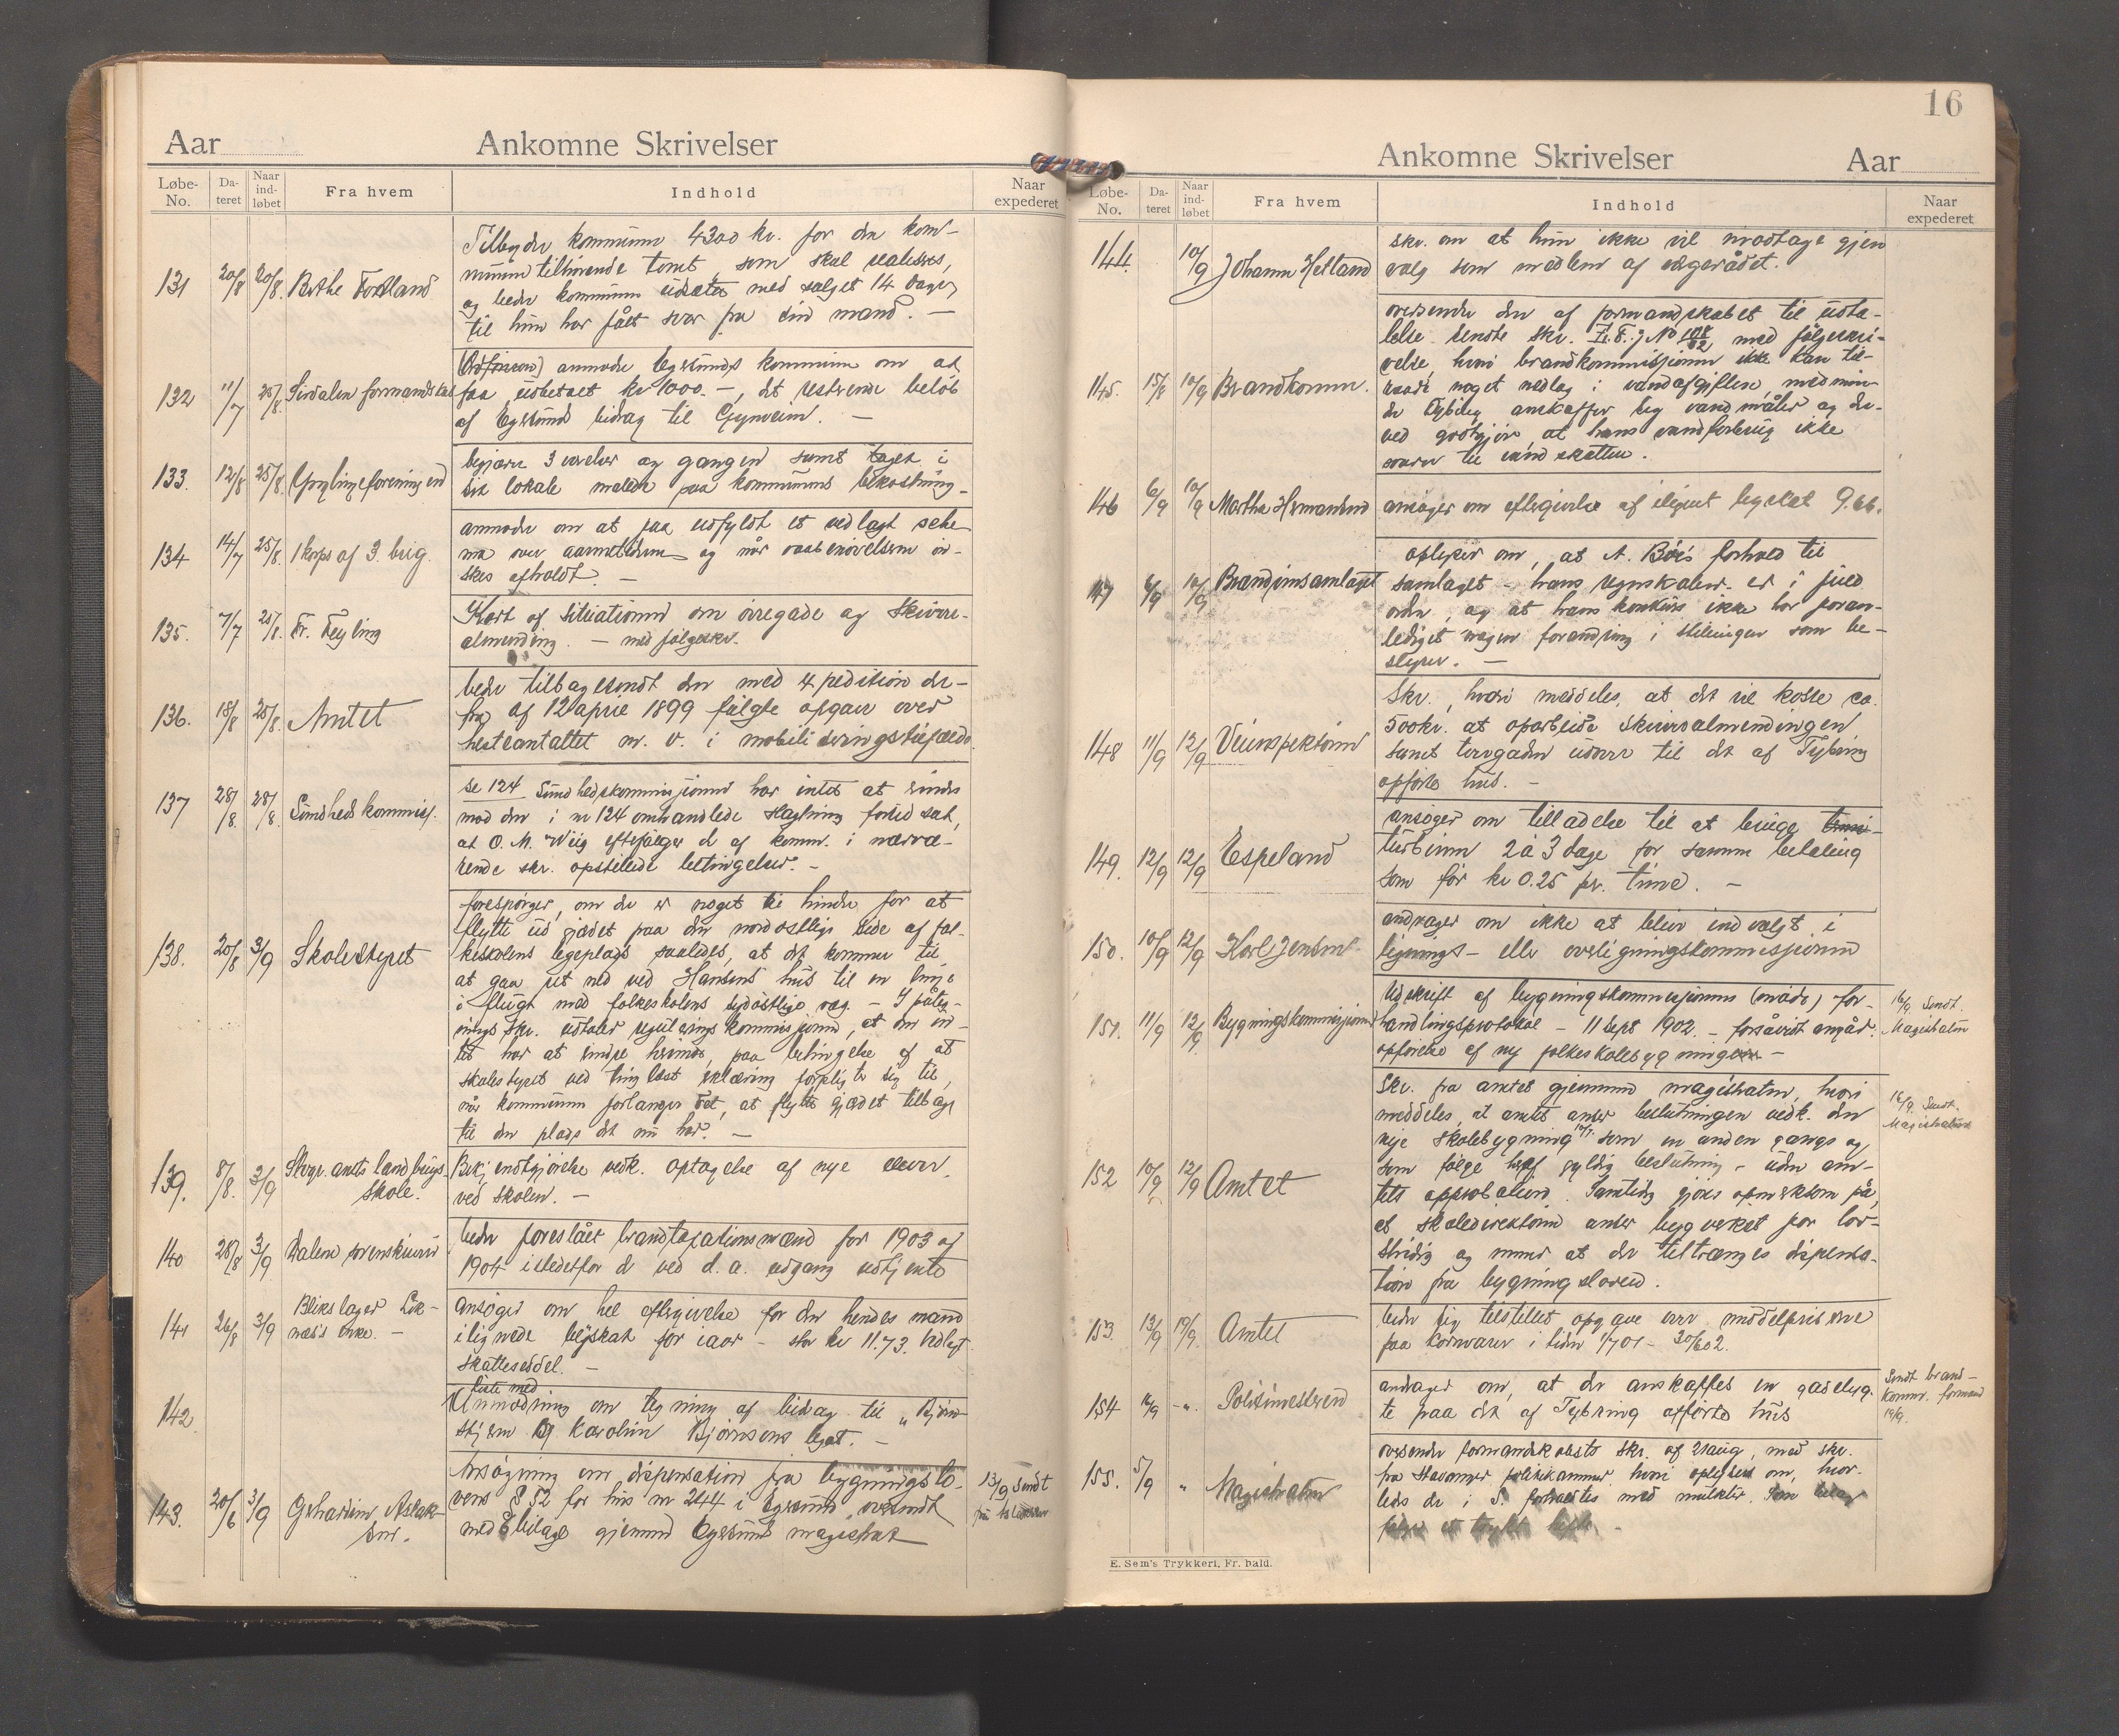 Aar
Ankomne Skrivelser
Løbe-No. Dateret Naar indløbet Fra hvem Indhold Naar expederet
131 20/8 20/8. Berthe Fotland
Tilbyder kommunen 4300 kr. for den kom-
munen tilhørende tomt, som skal realiseres,
og beder kommunen udsætte med salget 14 dage,
til hun har fået svar fra sin mand. —
132 11/7 25/8. Sirdalen formandskab
(Ordføreren) anmoder Egersunds kommune om at
faa udbetalt kr 1000.—, det resterende beløb
af Egersunds bidrag til Gyaveien. —
133. 12/8 25/8. Ynglingeforeningen
begjærer 3 værelser og gangen samt taget i
sit lokale malede paa kommunens bekostning.
134 14/7 25/8. 1 korps af 3. brig.
anmoder om at faa udfyldt et vedlagt sche-
ma over og når vaabenøvelserne øn-
skes afholdt. —
135. 7/7 25/8. Fr. Feyling
Kart af situationen om øvregade og Skivre-
almending. — med følgeskr.
136. 18/8 25/8. Amtet
beder tilbagesendt den med expedition der-
fra af 12 april 1899 fulgte opgave over
hesteantallet m. v. i mobiliseringstilfælde.
137 28/8. 28/8. Sundhedskommisj.
se 124 Sundhedskommisjonen har intet at erindre
mod den i nr 124 omhandlede slagtning forudsat,
at O. M. Wiig efterfølger de af komm. i nærvæ-
rende skr. opstillede betingelser. —
138. 20/8 3/9 Skolestyret
forespørger, om der er noget til hinder for at
flytte ud gjædet paa den nordostlige side af fol-
keskolens legeplads saaledes, at det kommer til
at gaa ret ned ved Hansens hus til en linje
i flugt med folkeskolens sydøstlige væg. — I påteg-
nings skr. udtaler reguleringskommisjonen, at den in-
tet har at erindre herimod, paa betingelse af at
skolestyret ved tinglæst erklæring forpligter sig til,
når kommunen forlanger det, at flytte gjædet tilbage
til den plads det nu har. —
139. 8/8. 3/9 Stvgr. amts landbrugs-
skole.
Bekjendtgjørelse vedk. optagelse af nye elever
ved skolen. —
140 28/8 3/9 Dalene sorenskriveri
beder foreslået brandtaxationsmænd for 1903 og
1904 istedetfor de ved d. a. udgang udtjente
141 26/8 3/9 Blikslager Løk-
næs's enke. —
ansøger om hel eftergivelse for den hendes mand
ilignede byskat for iaar — stor kr 11.73. Vedlagt
skatteseddel. —
142
liste med
Anmodning om tegning af bidrag til „Bjørn-
stjerne og Karoline Bjørnsons legat. —
143. 20/6 3/9 Gerhardine Aslak-
sen.
Ansøgning om dispensation fra bygningslo-
vens § 52 for hus nr 244 i Egersund, oversendt
med 8 bilage gjennem Egersunds magistrat
13/9 Sendt

16
Ankomne Skrivelser
Aar
Løbe-No. Dateret Naar indløbet Fra hvem Indhold Naar expederet
144. 10/9 Johanne Hetland
skr. om at hun ikke vil modtage gjen
valg som medlem af vergerådet.
145. 15/8 10/9 Brandkomm.
oversender den af formandskabet til udta-
lelse sendte skr. med følgeskri-
velse, hvori brandkommisjonen ikke kan til-
raade noget nedlag i vandafgiften, medmin-
dre Nybileg anskaffer sig vandmåler og der-
ved godtgjør, at hans vandforbrug ikke
svarer til vandskatten.
146 6/9 10/9 Martha Hermansen
ansøger om eftergivelse af ilignet byskat 9.66.
147 6/9 10/9 Brændevinssamlaget
oplyser om, at A. Bøe's forhold til
samlaget — hans regnskaber er i fuld
orden, og at hans konkurs ikke har foran-
lediget nogen forandring i stillingen som be-
styrer. —
148 11/9 12/9 Veiinspektøren
Skr., hvori meddeles, at det vil koste ca.
500 kr. at oparbeide Skivrealmendingen
samt torvgaden udover til det af Tybring
opførte hus. —
149. 12/9 12/9 Espeland
ansøger om tilladelse til at bruge
turbinen 2 à 3 dage for samme betaling
som før kr 0.25 pr. time. —
150. 10/9 12/9 Karl Jensen
andrager om ikke at blive indvalgt i
lignings- eller overligningskommisjonen
151. 11/9 12/9. Bygningskommisjonen
Udskrift af bygningskommisjonens (møde) for-
handlingsprotokol — 11 Sept 1902. — forsåvidt angår
opførelse af ny folkeskolebygning —
16/9 Sendt
Magistraten
152 10/9 12/9 Amtet
Skr. fra amtet gjennem magistraten, hvori
meddeles, at amtet anser beslutningen vedk. den
nye skolebygning som en anden gangs og
som følge heraf gyldig beslutning — uden am-
tets approbation. Samtidig gjøres opmerksom på,
at skoledirektøren anser bygverket for lov-
stridig og mener at der tiltrænges dispensa-
tion fra bygningsloven.
16/9. Sendt
Magistraten
153. 13/9 19/9. Amtet
beder sig tilstillet opgave over middelpriserne
paa kornvarer i tiden 1/7 01 — 30/6 02.
154 16/9 —„. Politimesteren
andrager om, at der anskaffes en gadelyg-
te paa det af Tybring opførte hus
Sendt brand-
komm. formand
19/9.
155. 5/9 „ Magistraten
oversender formandskabets skr. af 21 aug, med skr.
fra Stavanger politikammer hvori oplyses om, hvor-
ledes der i S. forholdes med mulkter. Som bilag
følger et trykt hefte. —
E. Sem's Trykkeri, Fr. hald.